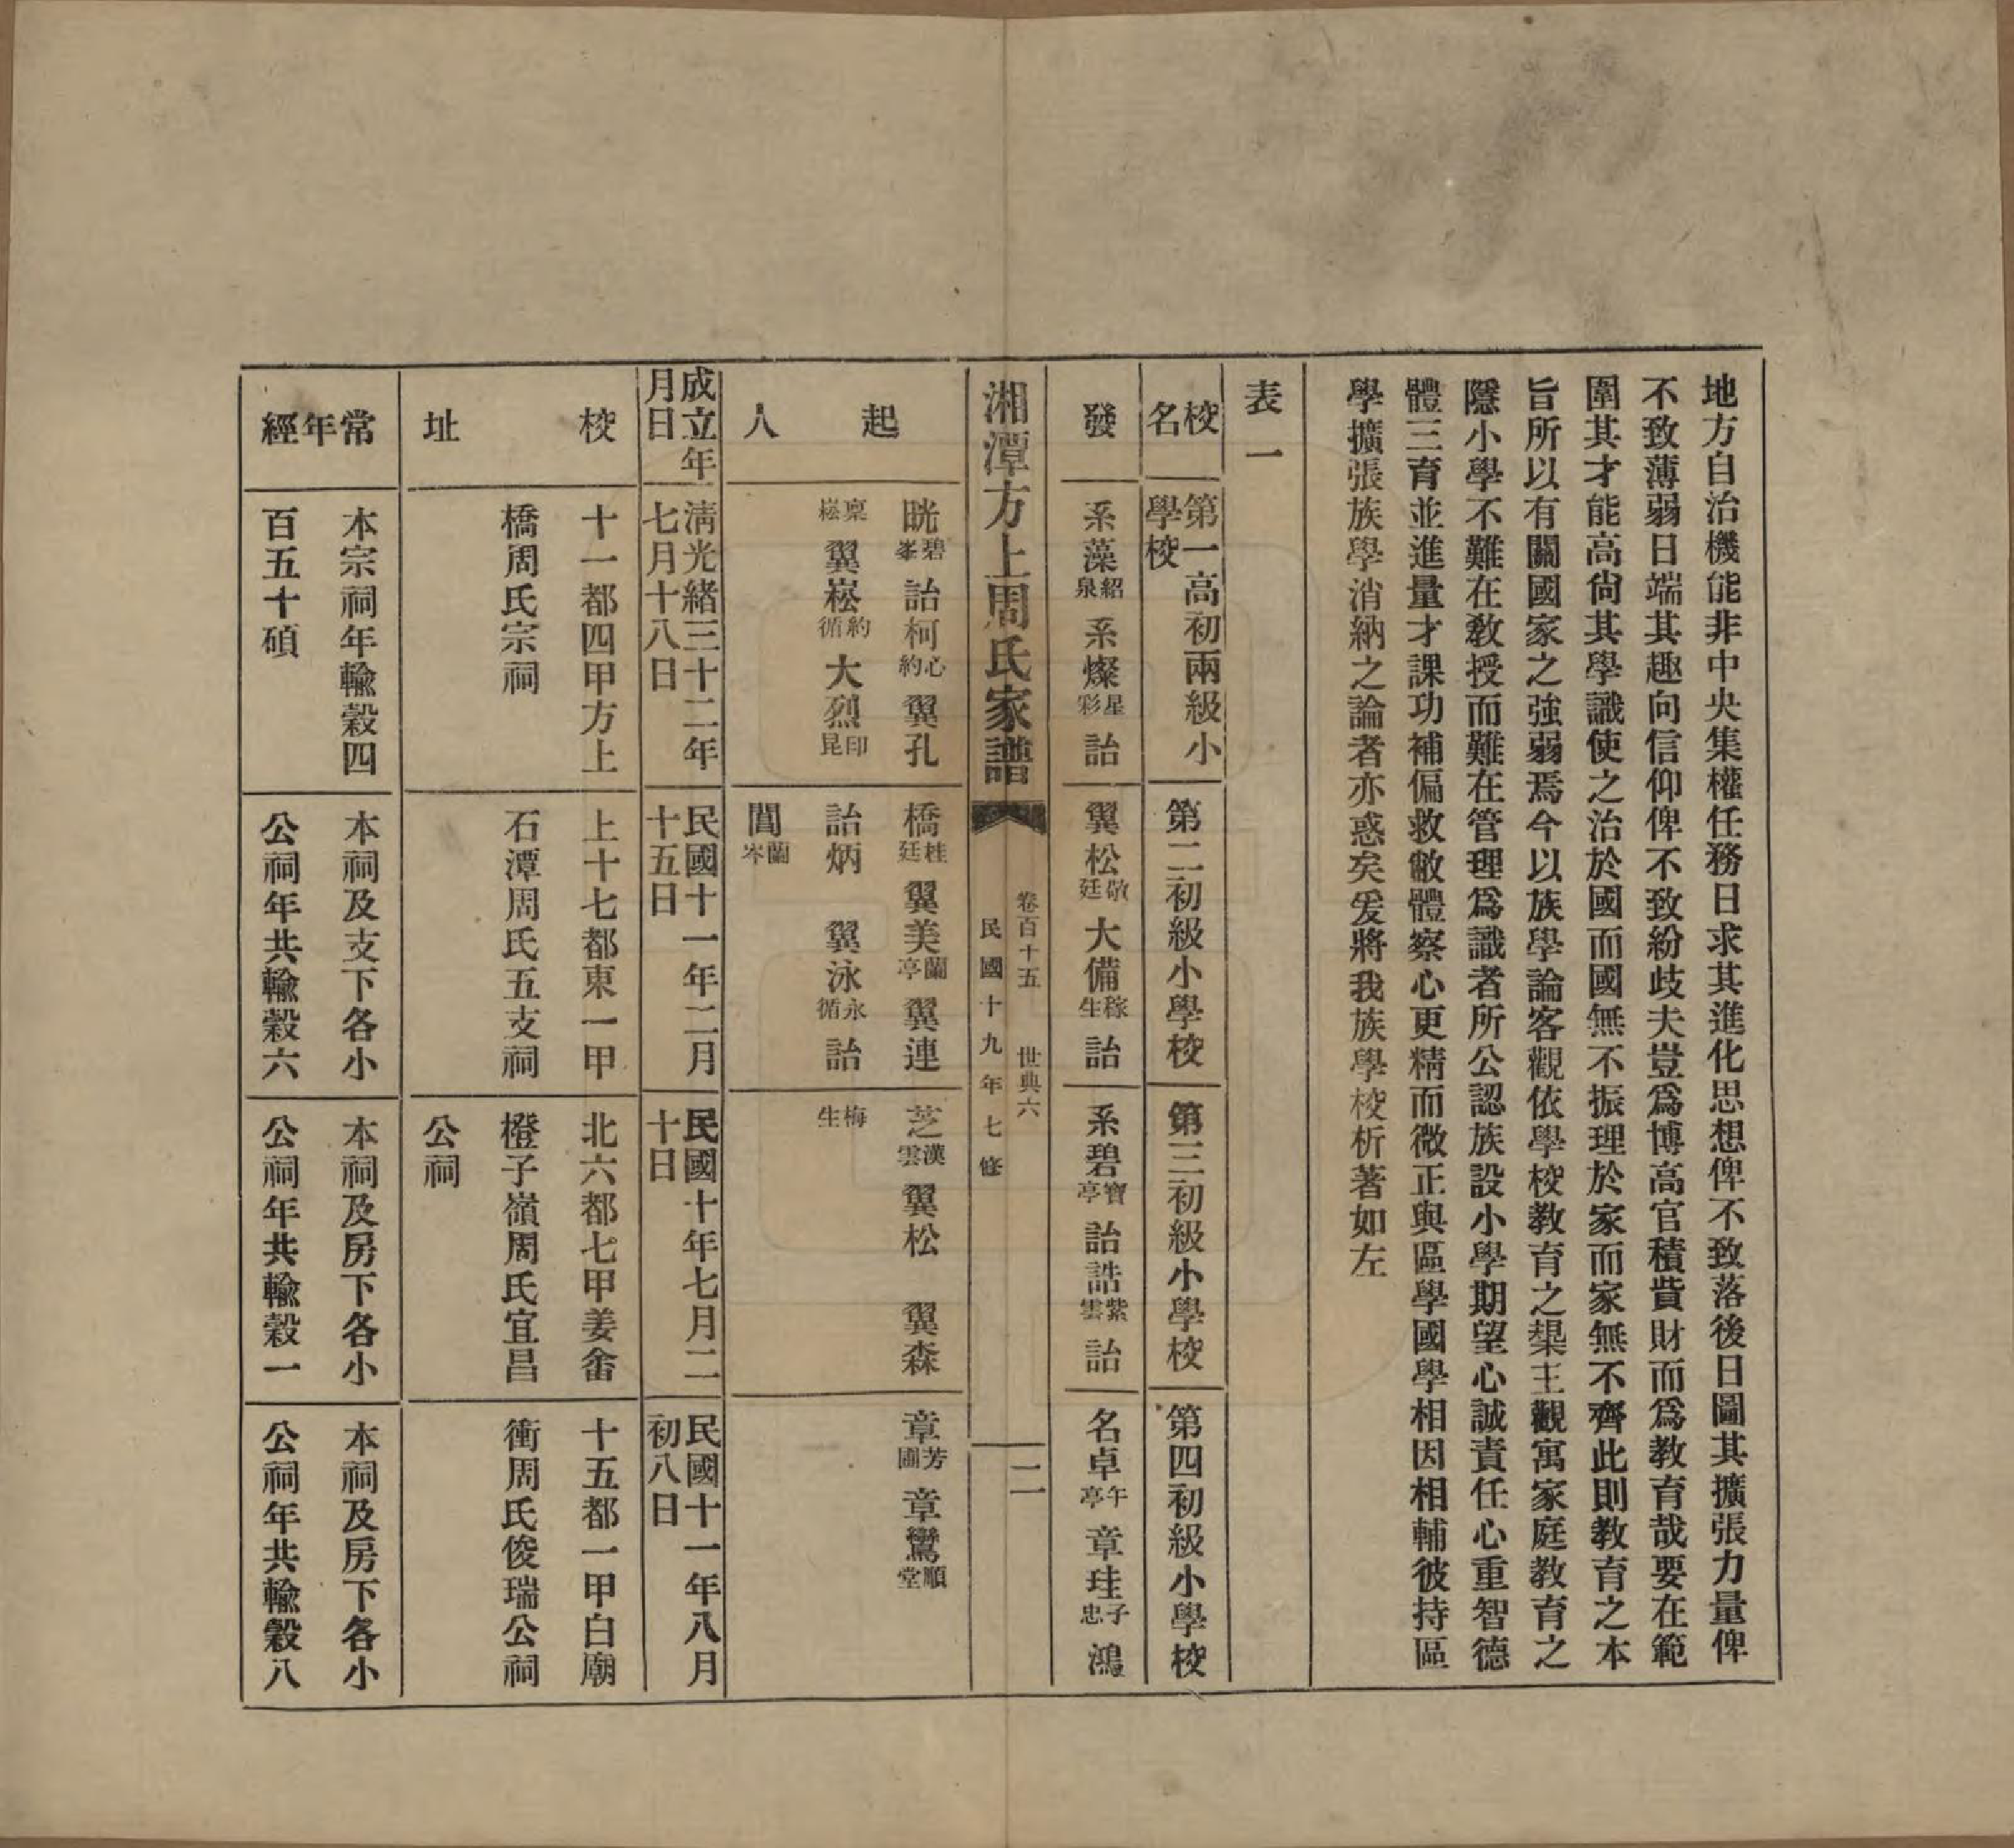 地方自治機能非中央集權任務日求其進化思想俾不致落後日圖其擴張力量俾
不致薄弱日端其趣向信仰俾不致紛歧夫豈爲博高官積貲財而爲教育哉要在範
圍其才能高尙其學識使之治於國而國無不振理於家而家無不齊此則教育之本
旨所以有關國家之強弱焉今以族學論客觀依學校教育之榘主觀寓家庭教育之
隱小學不難在敎授而難在管理爲識者所公認族設小學期望心誠責任心重智德
體三育並進量才課功補偏救敝體察心更精而微正與區學國學相因相輔彼持區
學擴張族學消納之論者亦惑矣爰將我族學校析著如左
表一
校名
第一高初兩級小學校
第二初級小學校
第三初級小學校
第四初級小學校
發
系藻紹泉 系燦星彩 詒
翼松敬廷 大備稼生 詒
系碧寶亭 詒誥紫雲 詒
名卓午亭 章珪子忠 鴻
湘潭方上周氏家譜
卷百十五 世典六
民國十九年七修
二
起
晄碧峯 詒柯心約 翼孔
橋桂廷 翼美蘭亭 翼連
芝漢雲 翼松 翼森
章芳圃 章鸞順堂
稟崧 翼崧約循 大烈印昆
詒炳 翼泳永循 詒
梅生
人
誾蘭岑
成立年月日
淸光緒三十二年七月十八日
民國十一年二月十五日
民國十年七月二十日
民國十一年八月初八日
校址
十一都四甲方上橋周氏宗祠
上十七都東一甲石潭周氏五支祠
北六都七甲姜畬橙子嶺周氏宜昌公祠
十五都一甲白廟衝周氏俊瑞公祠
常年經
本宗祠年輸穀四百五十碩
本祠及支下各小公祠年共輸穀六
本祠及房下各小公祠年共輸穀一
本祠及房下各小公祠年共輸穀八